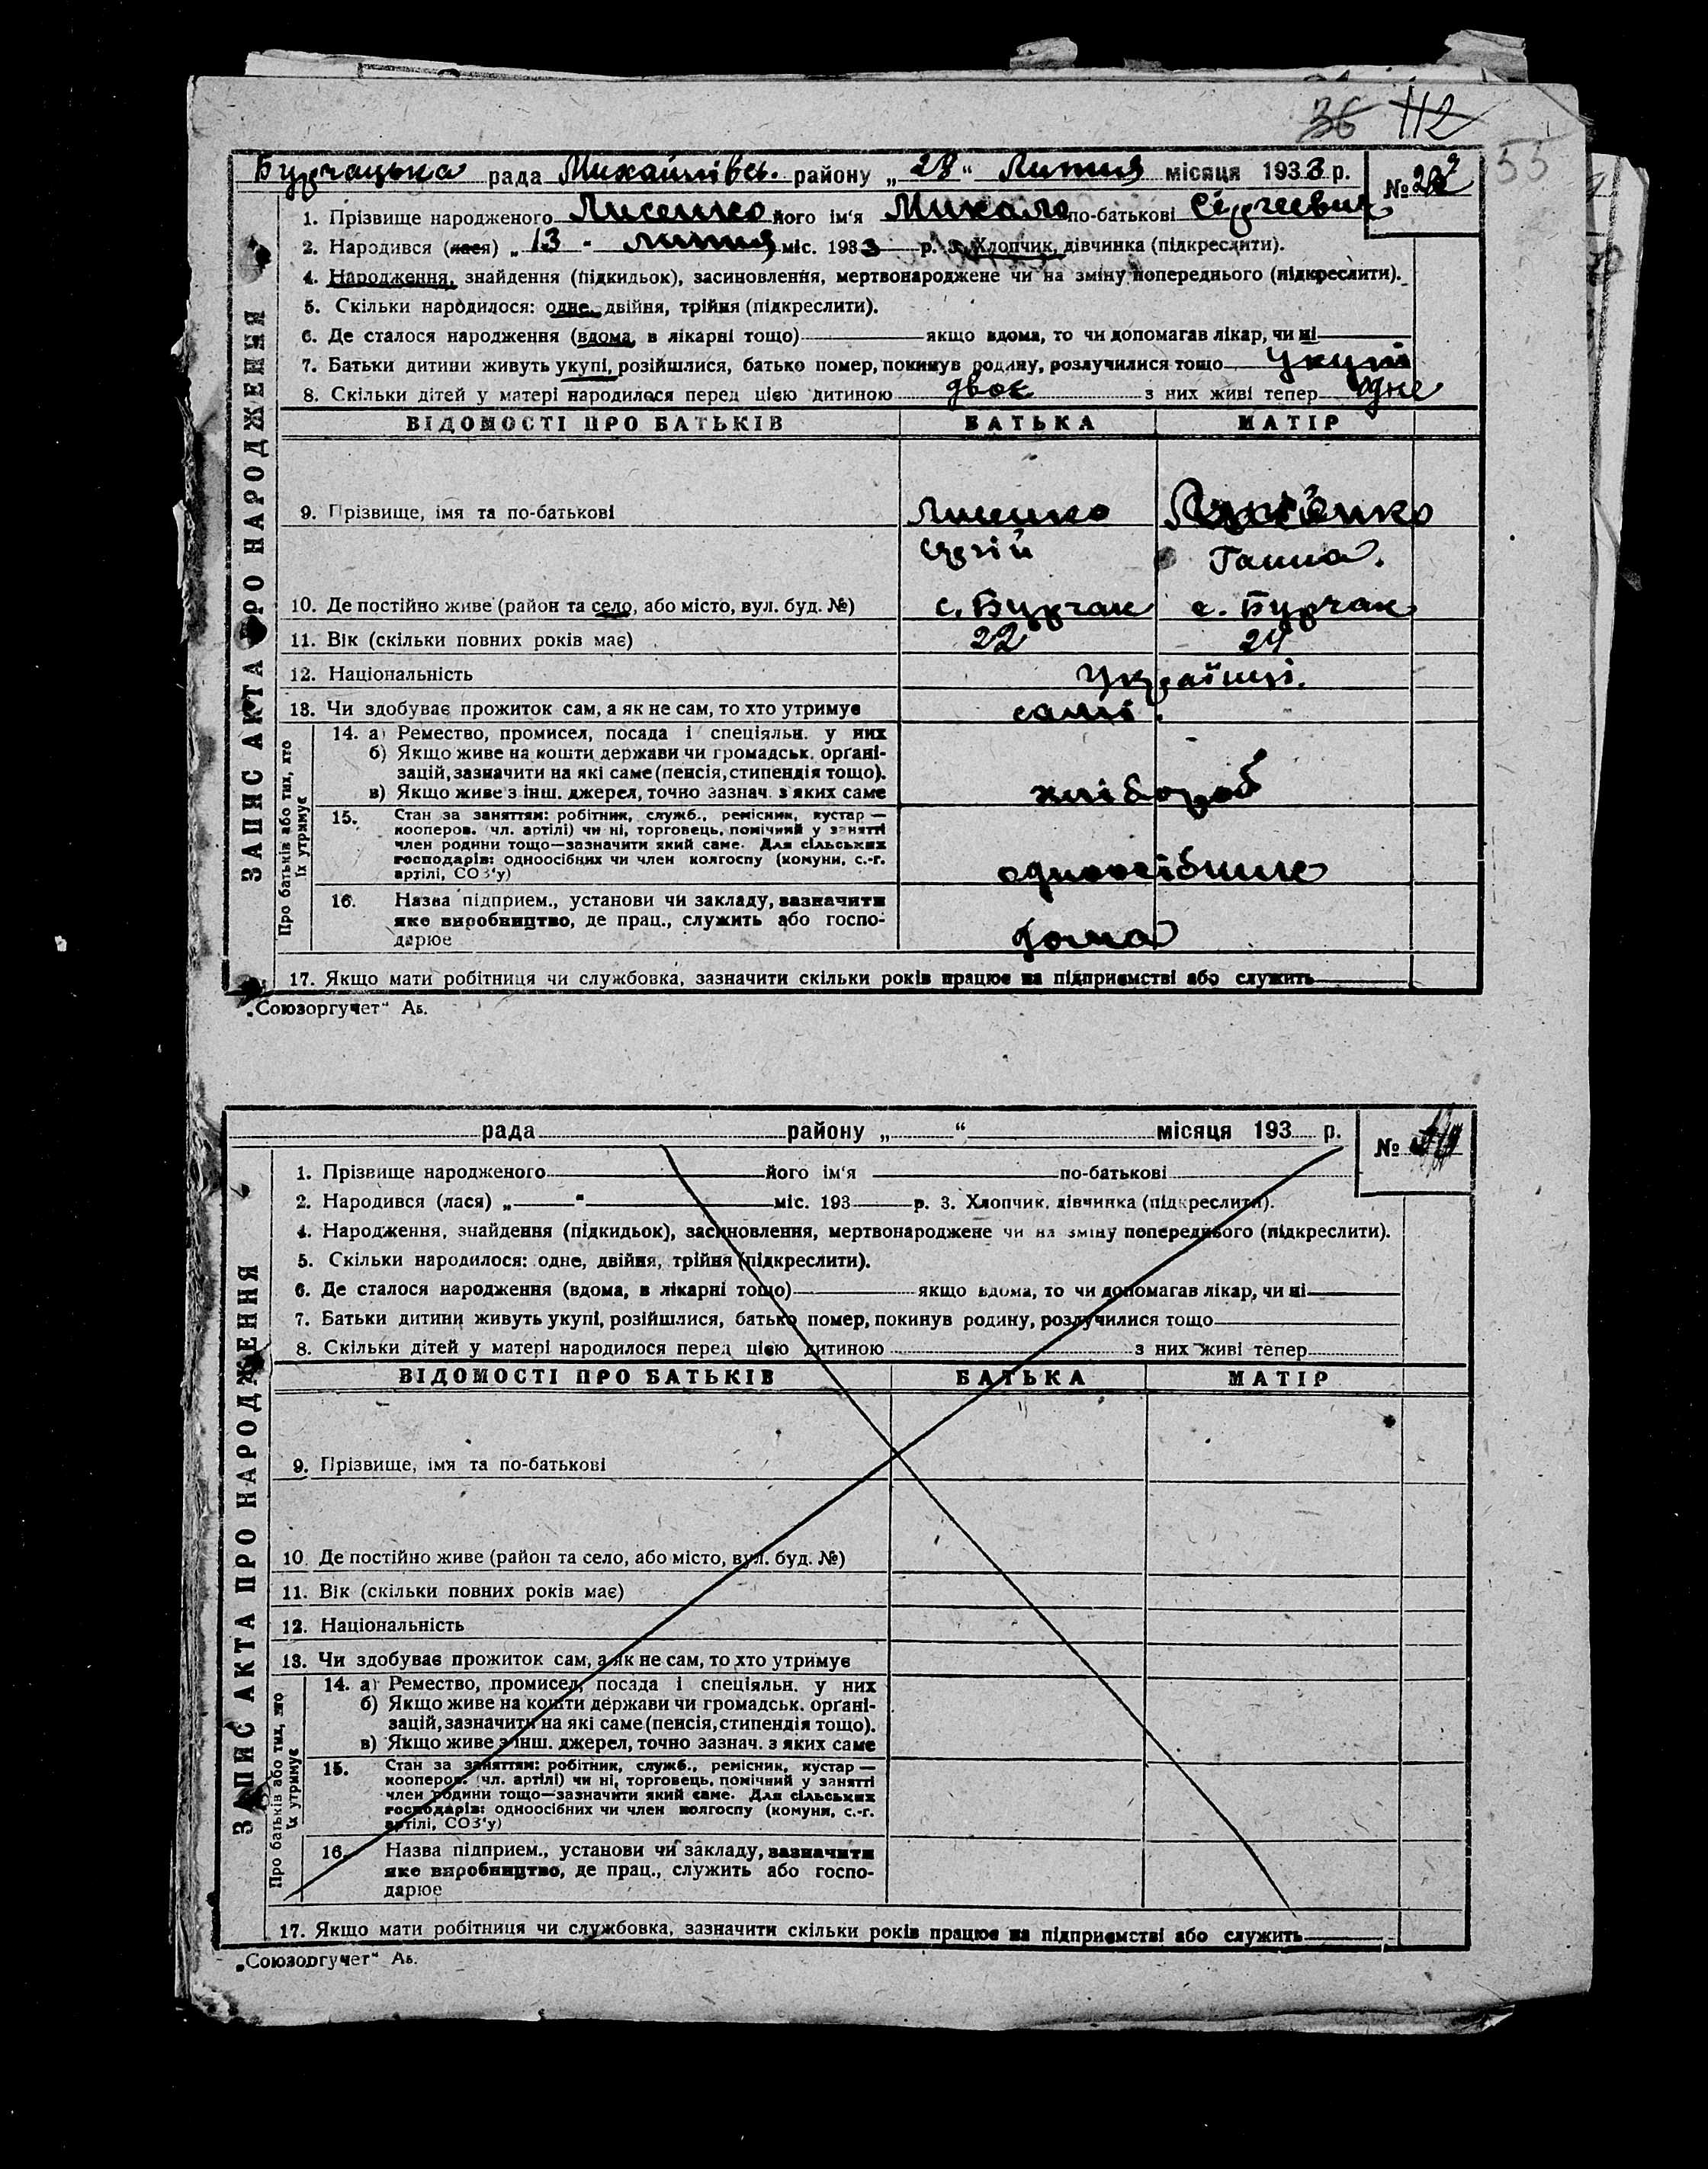 36 112
55
Бурчацька рада Михайлівсь. району „ 28 “ Лютня місяця 1933 р. №
1. Прізвище народженого Лисенко його ім'я Микола по-батькові Сергієвич
2. Народився (лася) „ 13 " лютня міс. 1933 р. 3. Хлопчик, дівчинка (підкреслити).
4. Народження, знайдення (підкидьок), засиновлення, мертвонароджене чи на зміну попереднього (підкреслити).
5. Скільки народилося: одне, двійня, трійня (підкреслити).
6. Де сталося народження (вдома, в лікарні тощо) якщо вдома, то чи допомагав лікар, чи ні
7. Батьки дитини живуть укупі, розійшлися, батько помер, покинув родину, розлучилися тощо Укупі
8. Скільки дітей у матері народилося перед цією дитиною двоє з них живі тепер одне
ЗАПИС АКТА ПРО НАРОДЖЕННЯ
ВІДОМОСТІ ПРО БАТЬКІВ БАТЬКА МАТІР
9. Прізвище, імя та по-батькові Лисенко
Сергій Ганна.
10. Де постійно живе (район та село, або місто, вул. буд. №) с. Бурчак с. Бурчак
11. Вік (скільки повних років має) 22 24
12. Національність Українці.
13. Чи здобуває прожиток сам, а як не сам, то хто утримує самі.
Про батьків або тих, хто їх утримує
14. а) Ремество, промисел, посада і спеціяльн. у них
б) Якщо живе на кошти держави чи громадськ. органі-
зацій, зазначити на які саме (пенсія, стипендія тощо).
в) Якщо живе з інш. джерел, точно зазнач. з яких саме хлібороб
15. Стан за заняттям: робітник, служб., ремісник, кустар —
кооперов. (чл. артілі) чи ні, торговець, помічний у занятті
член родини тощо—зазначити який саме. Для сільських
господарів: одноосібних чи член колгоспу (комуни, с.-г.
артілі, СОЗ'у) одноосібник
16. Назва підприєм., установи чи закладу, зазначити
яке виробництво, де прац., служить або госпо-
дарює дома
17. Якщо мати робітниця чи службовка, зазначити скільки років працює на підприємстві або служить
„Союзоргучет“ Аб.
рада району „ “ місяця 193 р. №
1. Прізвище народженого його ім'я по-батькові
2. Народився (лася) „ " міс. 193 р. 3. Хлопчик, дівчинка (підкреслити).
4. Народження, знайдення (підкидьок), засиновлення, мертвонароджене чи на зміну попереднього (підкреслити).
5. Скільки народилося: одне, двійня, трійня (підкреслити).
6. Де сталося народження (вдома, в лікарні тощо) якщо вдома, то чи допомагав лікар, чи ні
7. Батьки дитини живуть укупі, розійшлися, батько помер, покинув родину, розлучилися тощо
8. Скільки дітей у матері народилося перед цією дитиною з них живі тепер
ЗАПИС АКТА ПРО НАРОДЖЕННЯ
ВІДОМОСТІ ПРО БАТЬКІВ БАТЬКА МАТІР
9. Прізвище, імя та по-батькові
10. Де постійно живе (район та село, або місто, вул. буд. №)
11. Вік (скільки повних років має)
12. Національність
13. Чи здобуває прожиток сам, а як не сам, то хто утримує
Про батьків або тих, хто їх утримує
14. а) Ремество, промисел, посада і спеціяльн. у них
б) Якщо живе на кошти держави чи громадськ. органі-
зацій, зазначити на які саме (пенсія, стипендія тощо).
в) Якщо живе з інш. джерел, точно зазнач. з яких саме
15. Стан за заняттям: робітник, служб., ремісник, кустар —
кооперов. (чл. артілі) чи ні, торговець, помічний у занятті
член родини тощо—зазначити який саме. Для сільських
господарів: одноосібних чи член колгоспу (комуни, с.-г.
артілі, СОЗ'у)
16. Назва підприєм., установи чи закладу, зазначити
яке виробництво, де прац., служить або госпо-
дарює
17. Якщо мати робітниця чи службовка, зазначити скільки років працює на підприємстві або служить
„Союзоргучет“ Аб.